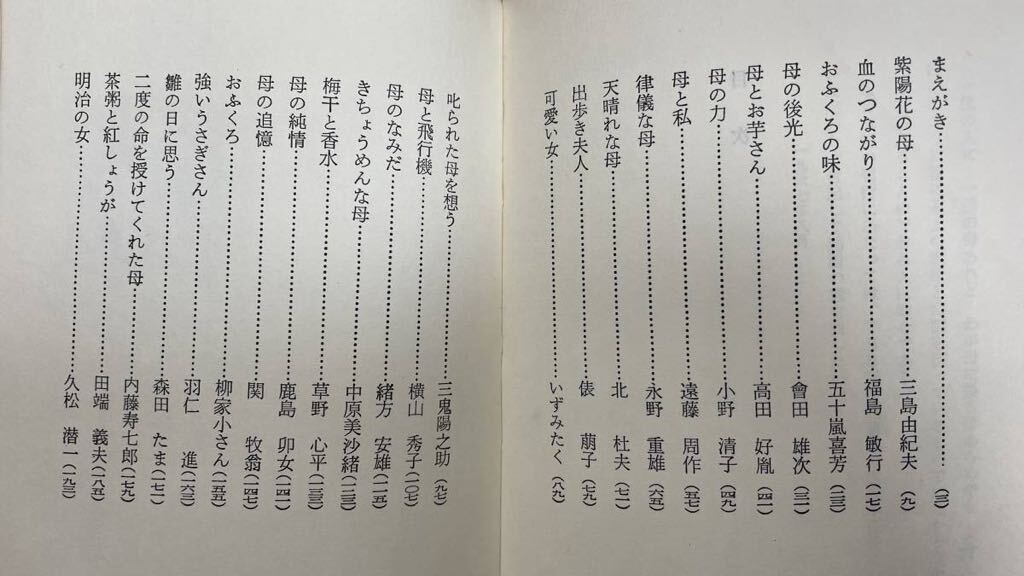 まえがき……………………（三）
紫陽花の母……………………三島由紀夫（九）
血のつながり……………………福島　敏行（一七）
おふくろの味……………………五十嵐喜芳（二三）
母の後光……………………會田　雄次（三一）
母とお芋さん……………………高田　好胤（四一）
母の力……………………小野　清子（四九）
母と私……………………遠藤　周作（五七）
律儀な母……………………永野　重雄（六五）
天晴れな母……………………北　杜夫（七一）
出歩き夫人……………………俵　萠子（七九）
可愛い女……………………いずみたく（八九）
叱られた母を想う……………………三鬼陽之助（九七）
母と飛行機……………………横山　秀子（一〇七）
母のなみだ……………………緒方　安雄（一一五）
きちょうめんな母……………………中原美沙緒（一二三）
梅干と香水……………………草野　心平（一三三）
母の純情……………………鹿島　卯女（一四一）
母の追憶……………………関　牧翁（一四七）
おふくろ……………………柳家小さん（一五五）
強いうさぎさん……………………羽仁　進（一六三）
雛の日に思う……………………森田　たま（一七一）
二度の命を授けてくれた母……………………内藤寿七郎（一七九）
茶粥と紅しょうが……………………田端　義夫（一八五）
明治の女……………………久松　潜一（一九三）